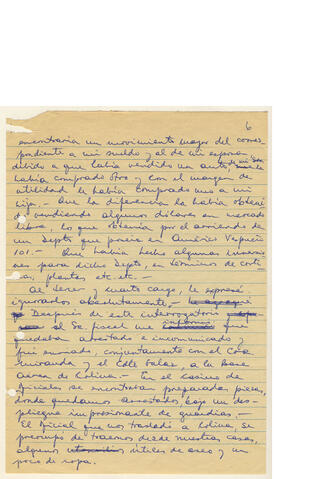 6
encontraría un movimiento mayor del corres
pondiente a mi sueldo y al de mi esposa
debido a que había vendido un auto
había comprado otro y con el margen de
utilidad le había comprado uno a mi
hija.- Que la diferencia la había obteni
do vendiendo algunos dólares en mercado
libre, lo que obtenía por el arriendo de
un Depto que poseía en Américo Vespucio
101.- Que había hecho algunas inversio
nes para dicho Depto, en términos de corti
nas, plantas, etc. etc.-
Al tercer y cuarto cargo, le expresé
ignorarlos absolutamente.-
Después de este interrogatorio
el Sr. fiscal me que
quedaba arrestado e incomunicado y
fui enviado, conjuntamente con el Cdte
Miranda y el Cdte Galaz, a la Base
Aérea de Colina.- En el casino de
Oficiales se encontraban preparadas piezas,
donde quedamos arrestados bajo un des
pliegue impresionante de guardias.-
El Oficial que nos trasladó a Colina, se
preocupó de traernos desde nuestras casas,
algunos útiles de aseo y un
poco de ropa.